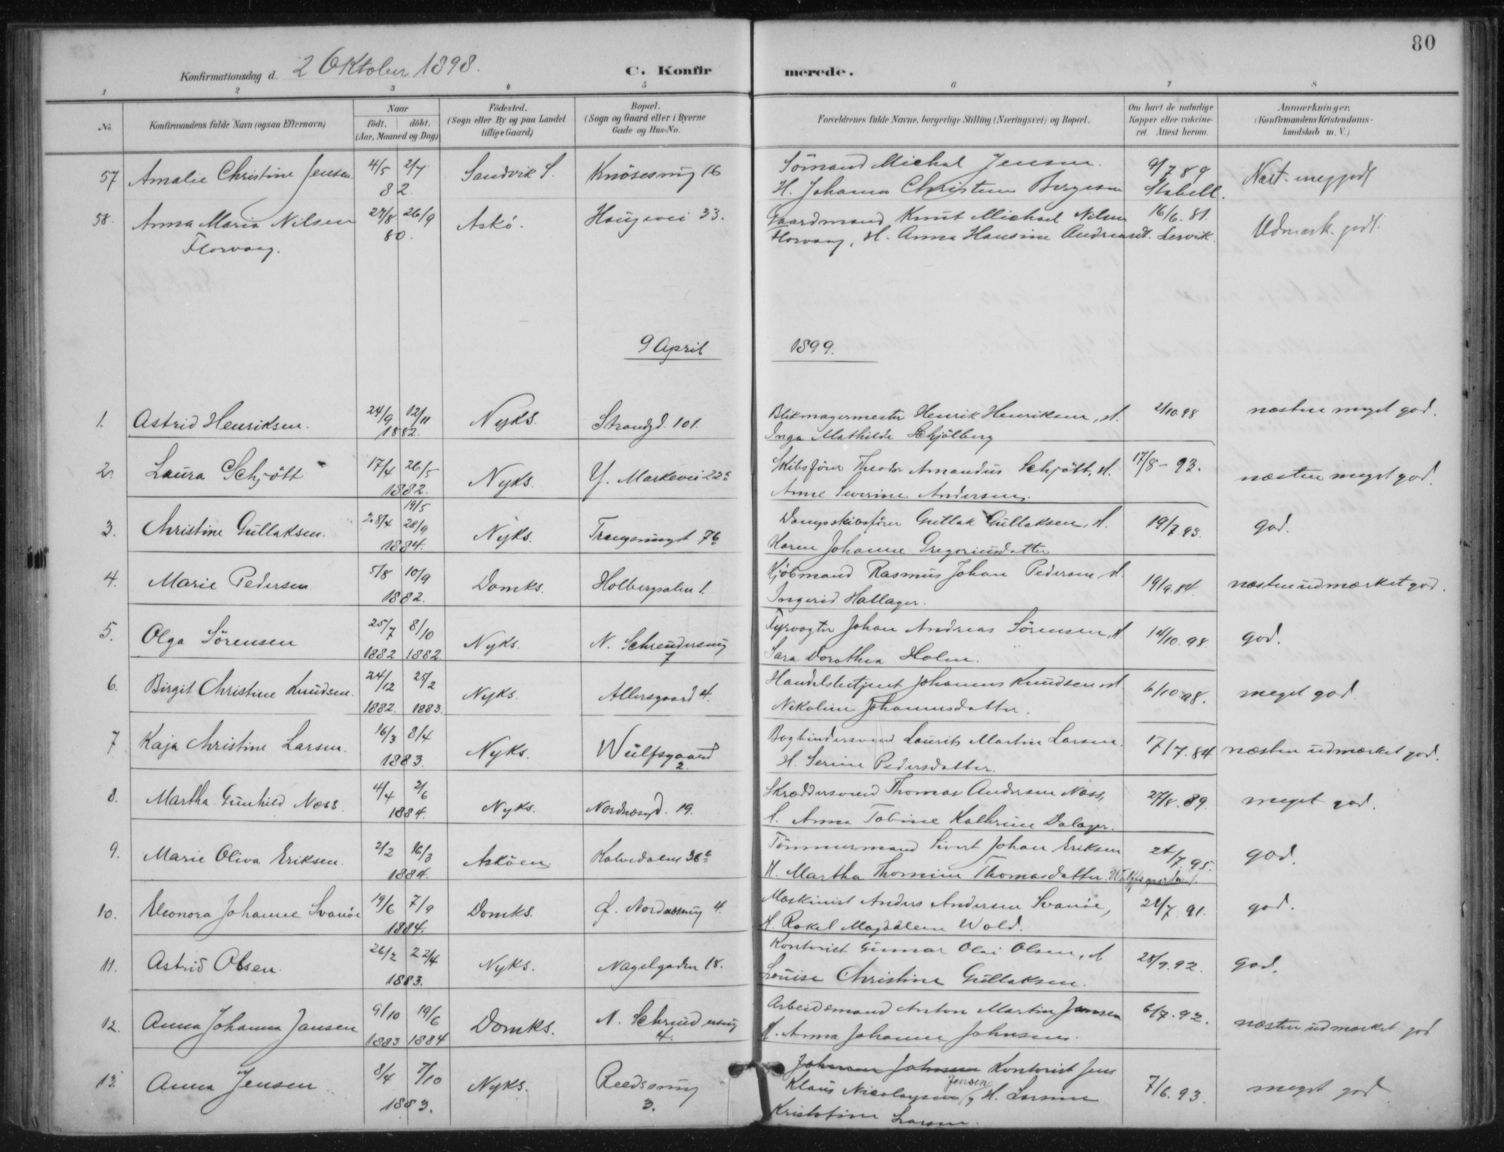 80
Konfirmationsdag d. 2 Oktober 1898. C. Konfirmerede.
1 2 3 4 5 6 7 8
No. Konfirmandens fulde Navn (ogsaa Efternavn) Naar født, døbt. (Aar, Maaned og Dag) Fødested. (Sogn eller By og paa Landet tillige Gaard) Bopæl. (Sogn og Gaard eller i Byerne Gade og Hus-No. Forældrenes fulde Navne, borgerlige Stilling (Næringsvei) og Bopæl. Om havt de naturlige Kopper eller vakcineret. Attest herom. Anmærkninger. (Konfirmandens Kristendomskundskab m. V.)
57 Amalie Christine Jensen 4/5 2/7 Sandvik S. Knøsesmug 16 Sømand Michal Jensen. 9/7 89 Næst. meg godt
82. H. Johanna Christine Bergesen Stabell.
58. Anna Maria Nilsen 27/8 26/9 Askø. Haugevei 33. Gaardmand Knut Michael Nilsen 16/6. 81. Udmærk. godt.
Florvaag. 80. Florvaag, H. Anna Hansine Andreasd. Lervik.
9 April 1899.
1. Astrid Henriksen. 24/9 12/11 Nyks. Strandgd. 101. Blikmagermester Henrik Henriksen, H. 2/10 98 næsten meget god.
1882. Inga Mathilde Schjølberg
2. Laura Schjøtt 17/4 26/5 Nyks. Y. Markevei 22c Skibsfører Theodor Amandus Schjøtt, H. 17/8 - 93. næsten meget god.
1882. Anne Severine Andersen.
19/5
3. Christine Gullaksen. 28/4 28/9 Nyks. 7b Dampskibsfører Gullak Gullaksen, H. 19/7 93. god.
1884. Karen Johanne Gregoriusdatter
4. Marie Pedersen 5/8 10/9 Domks. Holbergsalm 1. Kjøbmand Rasmus Johan Pedersen H. 19/9 84. næsten udmærket god.
1882. Ingerid Hallager.
5. Olga Sørensen 25/7 8/10 Nyks. N. Schreudersmug Fyrvogter Johan Andreas Sørensen, H 14/10. 98. god.
1882 1882 7 Sara Dorothea Holm.
6. Birgit Christine Knudsen. 24/12 25/2 Nyks. Allersgaard 4. Handelsbetjent Johannes Knudsen H 6/10 98. meget god.
1882. 1883. Nikoline Johannesdatter.
7. Kaja Christine Larsen. 16/3 8/4 Nyks. Wulfsgaard Bogbindersvend Laurits Martin Larsen. 17/7. 84 næsten udmærket god.
1883. 2 H. Serine Pedersdatter.
8. Martha Gunhild Næss. 4/4 2/6 Nyks. Nordnæsgd. 19. Skræddersvend Thomas Andersen Næss, 27/8. 89. meget god.
1884. H. Anna Tobine Kathrine Dalager.
9. Marie Oliva Eriksen. 2/2 16/3 Askøen Kalvedalen 36c Tømmermand Sivert Johan Eriksen 24/7. 95. god.
1884. H. Martha Thomine Thomasdatter.
10. Eleonora Johanne Svanøe 19/6 7/9 Domks. Ø. Nordnæssmug 4. Maskinist Anders Andersen Svanøe, 28/7. 91. god.
1884. H. Rakel Magdalene Wold.
11. Astrid Olsen. 26/2 22/4 Nyks. Nagelgaden 18. Kontorist Gunnar Olai Olsen, H 28/9. 92. god.
1883. Louise Christine Gullaksen.
12. Anna Johanna Jansen 9/10 19/6 Domks. N. Schreudersmug Arbeidsmand Anton Martin Jansen 6/7. 92. næsten udmærket god
1883 1884 4. H. Anna Johanne Johnsen.
13. Anna Jensen 8/4 7/10 Nyks. Reedssmug Johnson Johnsen Kontorist Jens 7/6. 93. meget god
1883. 3. Klaus Nicolaysen Jensen, H.
Kristine Larsen.